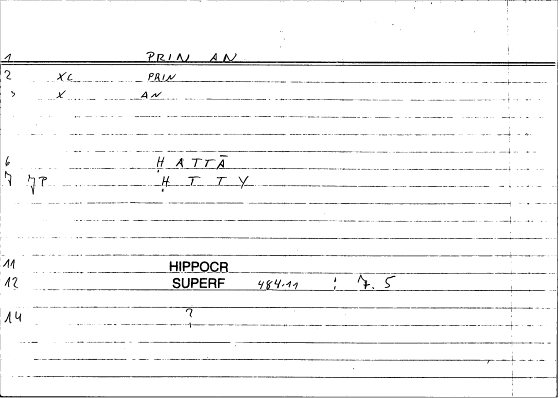 1 PRIN AN
2 XC PRIN
3 X AN
6 ḤATTĀ
7 7P Ḥ T T Y
11 HIPPOCR
12 SUPERF 484.11 : 7.5
14 ?